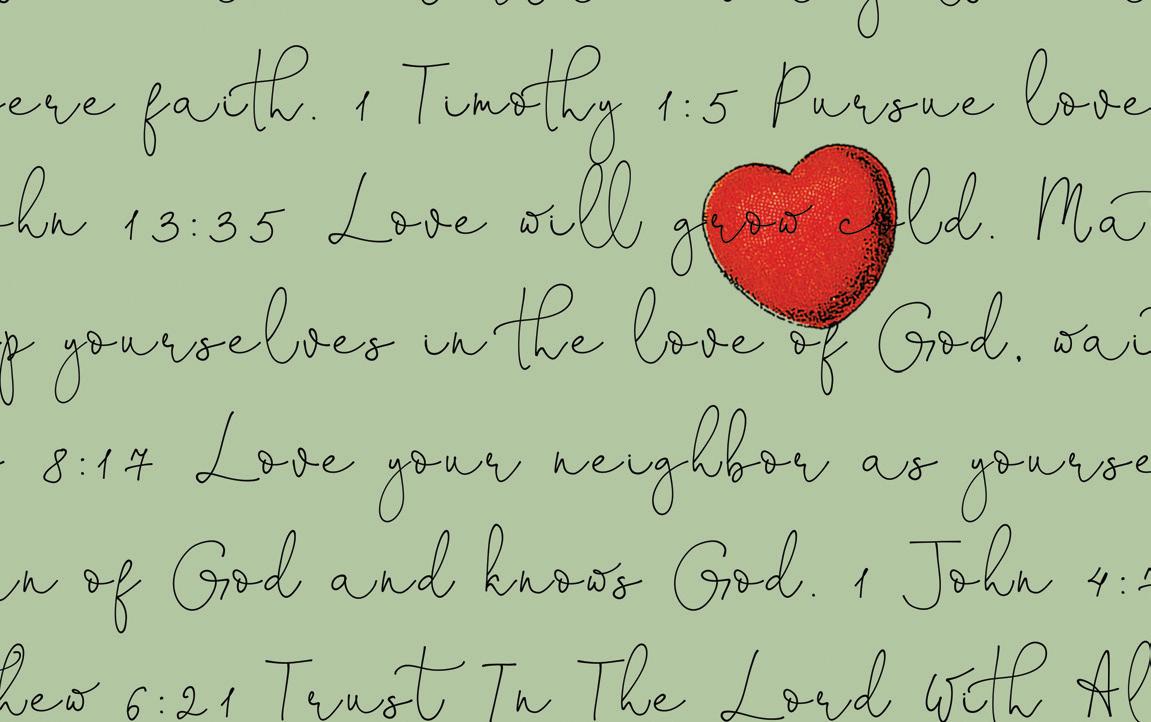 ere faith. 1 Timothy 1:5 Pursue love
hn 13:35 Love will grow cold. Ma
p yourselves in the love of God, wai
8:17 Love your neighbor as yourse
n of God and knows God. 1 John 4:
hew 6:21 Trust In The Lord With Al